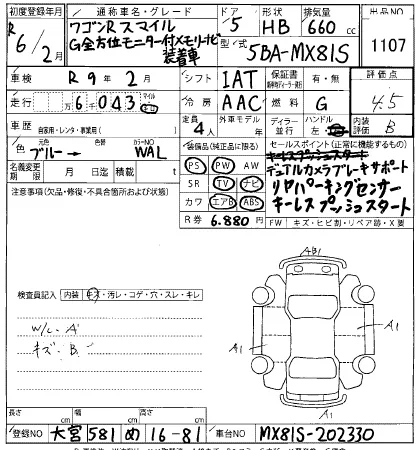 初度登録年月 通称車名・グレード ドア 形状 排気量 出品NO
R6/2月 ワゴンR スマイル 5 HB 660 cc 1107
G全方位モニター付メモリーナビ装着車 型式 5BA-MX81S
車検 R9年2月 シフト 1AT 保証書 評価点
走行 6043 マイル キロ 冷房 AAC 燃料 G 4.5
車歴 自家用・レンタ・事業用( ) 定員 4人 外車モデル 年 ディーラー 並行 ハンドル 内装評価 B
色 ブルー→ 色替 カラーNO WAL 装備品(純正品に限る) セールスポイント(正常に機能するもの)
名義変更期限 月 日 積載 t PS PW AW キーレスプッシュスタート
注意事項(欠品・修復・不具合箇所および状態) SR TV ナビ デュアルカメラブレーキサポート
カワ エアB ABS リヤパーキングセンサー
R券 6.880円 キーレスプッシュスタート
FW キズ・ヒビ割・リペア跡・X要
検査員記入 内装 キズ・汚レ・コゲ・穴・スレ・キレ
AB1
W/L・A
キズ・B
A1 A1
長さ cm 幅 cm 高さ cm
登録NO 大宮 581 め 16-81 車台NO MX81S-202330